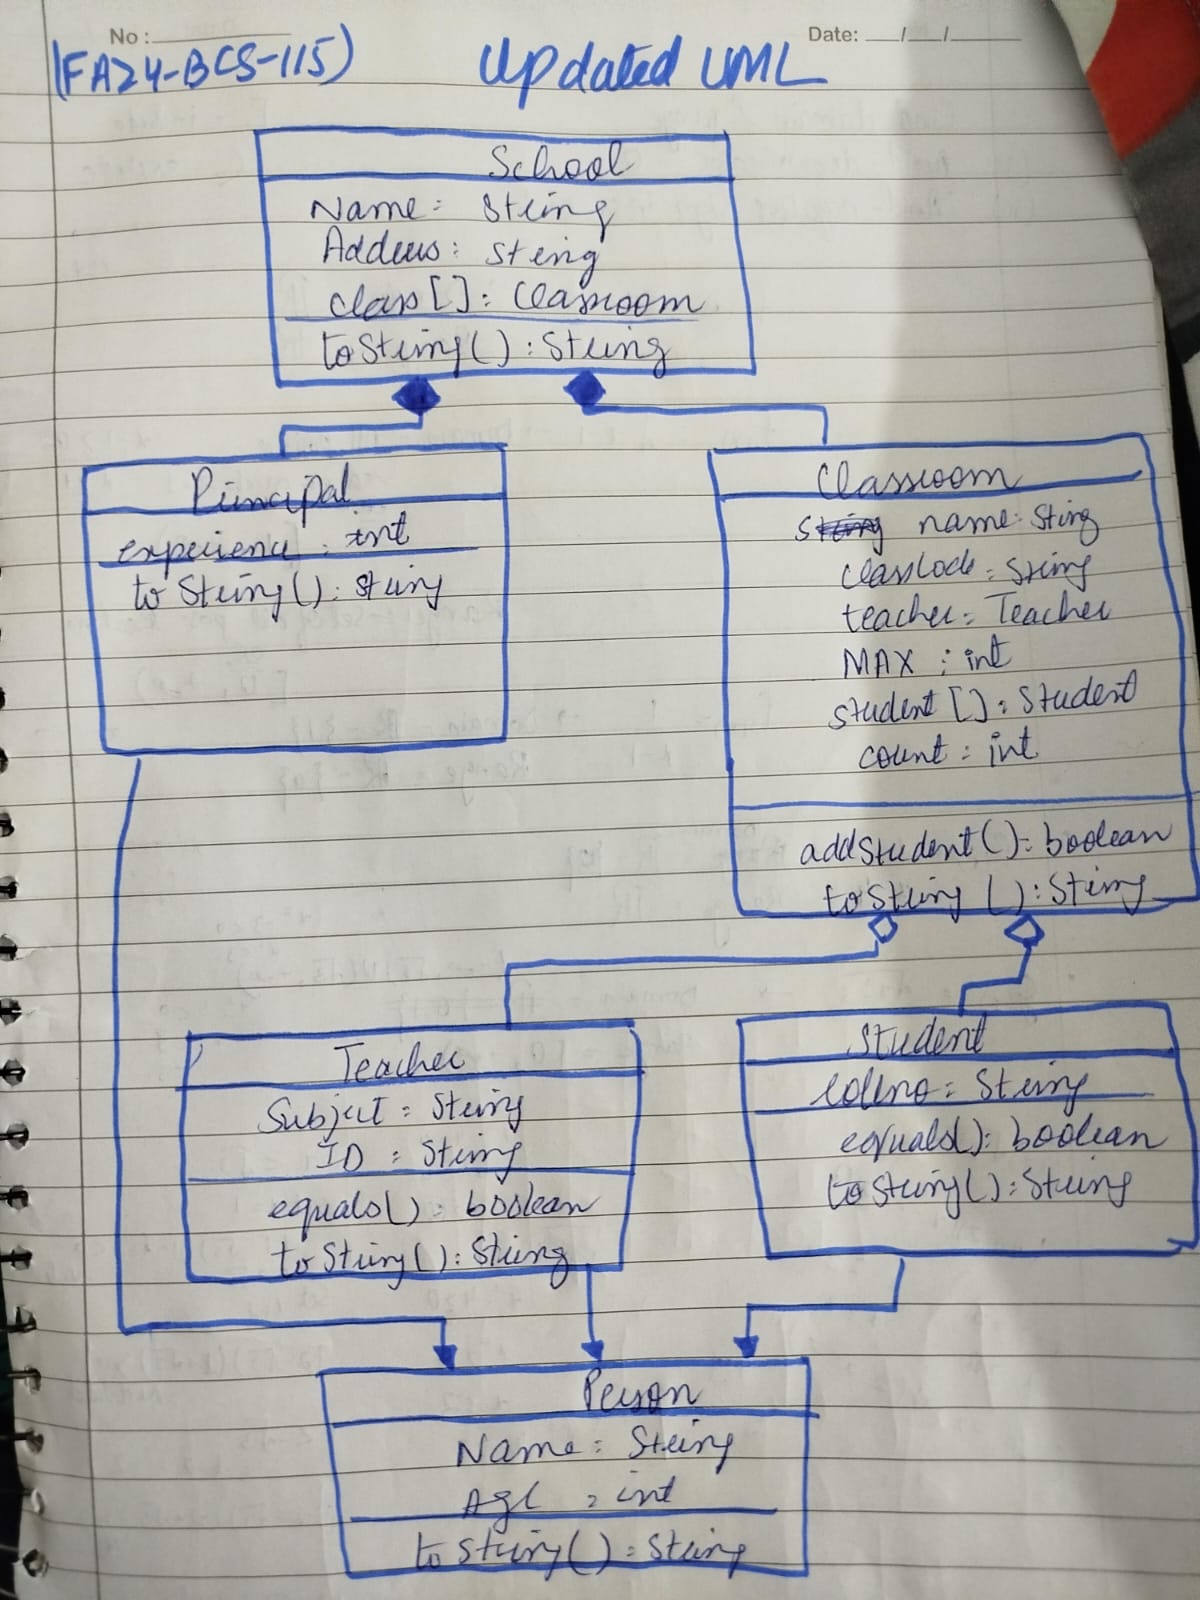 No :
Date: __/__/__
(FA24-BCS-115)
Updated UML
School
Name: String
Address: String
class[]: Classroom
toString(): String
Principal
experience: int
toString(): String
Classroom
name: String
classCode: String
teacher: Teacher
MAX: int
student[]: Student
count: int
addStudent(): boolean
toString(): String
Teacher
Subject: String
ID: String
equals(): boolean
toString(): String
Student
rollno: String
equals(): boolean
toString(): String
Person
Name: String
Age: int
toString(): String